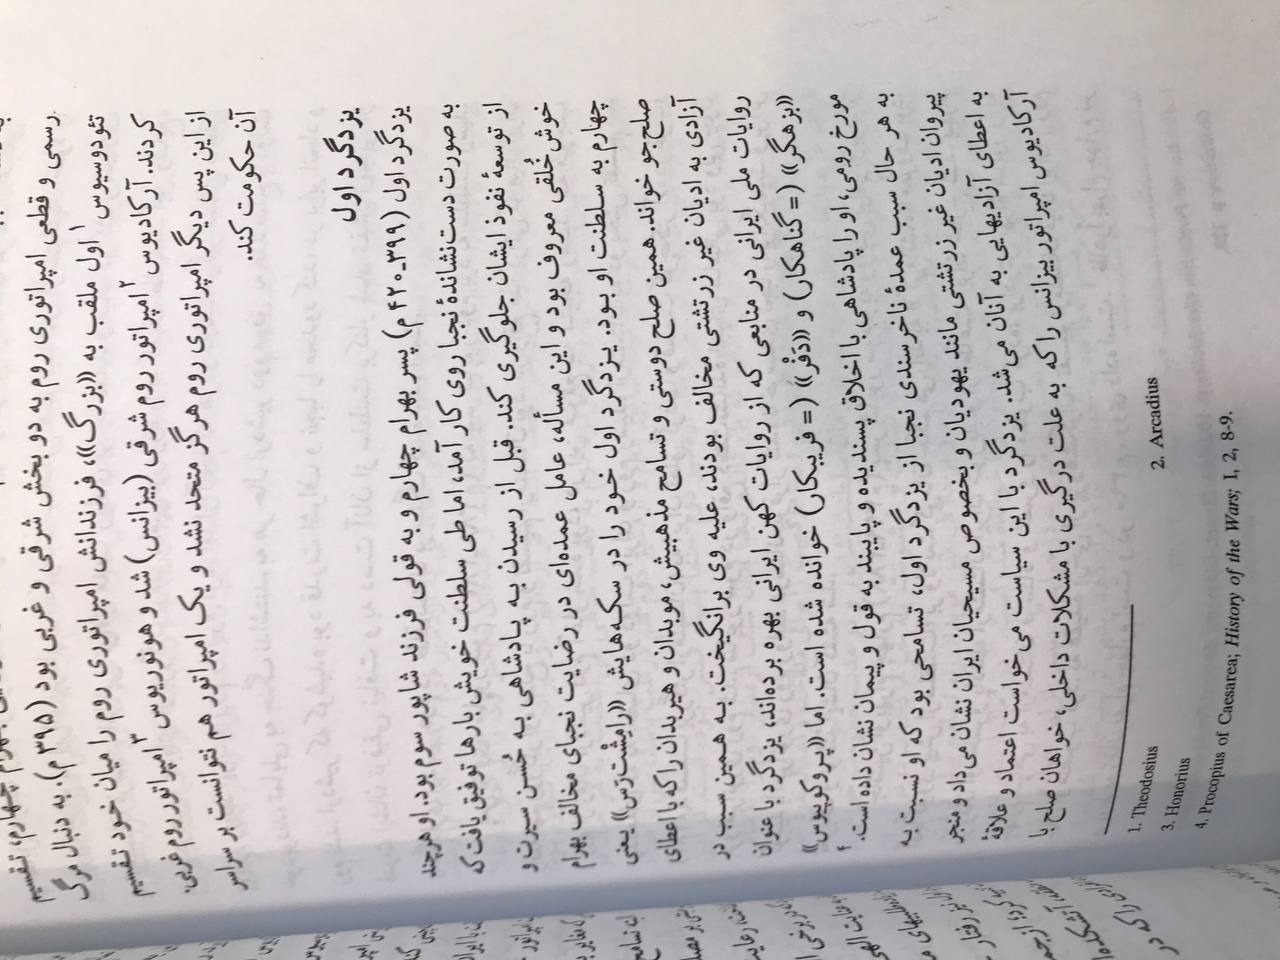 بهرام چهارم، تقسیم
رسمی و قطعی امپراتوری روم به دو بخش شرقی و غربی بود (۳۹۵ م). به دنبال مرگ
تئودوسیوس۱ اول ملقب به «بزرگ»، فرزندانش امپراتوری روم را میان خود تقسیم
کردند. آرکادیوس۲ امپراتور روم شرقی (بیزانس) شد و هونوریوس۳ امپراتور روم غربی.
از این پس دیگر امپراتوری روم هرگز متحد نشد و یک امپراتور هم نتوانست بر سراسر
آن حکومت کند.
یزدگرد اول
یزدگرد اول (۳۹۹-۴۲۰ م) پسر بهرام چهارم و به قولی فرزند شاپور سوم بود. او هرچند
به صورت دست‌نشاندهٔ نجبا روی کار آمد، اما طی سلطنت خویش بارها توفیق یافت که
از توسعهٔ نفوذ ایشان جلوگیری کند. قبل از رسیدن به پادشاهی به حُسن سیرت و
خوش خُلقی معروف بود و این مسأله، عامل عمده‌ای در رضایت نجبای مخالف بهرام
چهارم به سلطنت او بود. یزدگرد اول خود را در سکه‌هایش «رامِشْت‌رَس» یعنی
صلح‌جو خواند. همین صلح دوستی و تسامح مذهبیش، موبدان و هیربدان را که با اعطای
آزادی به ادیان غیر زرتشتی مخالف بودند، علیه وی برانگیخت. به همین سبب در
روایات ملی ایرانی در منابعی که از روایات کهن ایرانی بهره برده‌اند، یزدگرد با عنوان
«بزهگر» (= گناهکار) و «دَفْر» (= فریبکار) خوانده شده است. اما «پروکوپیوس»
مورخ رومی، او را پادشاهی با اخلاق پسندیده و پایبند به قول و پیمان نشان داده است.۴
به هر حال سبب عمدهٔ ناخرسندی نجبا از یزدگرد اول، تسامحی بود که او نسبت به
پیروان ادیان غیر زرتشتی مانند یهودیان و بخصوص مسیحیان ایران نشان می‌داد و منجر
به اعطای آزادیهایی به آنان می‌شد. یزدگرد با این سیاست می‌خواست اعتماد و علاقهٔ
آرکادیوس امپراتور بیزانس را که به علت درگیری با مشکلات داخلی، خواهان صلح با
1. Theodosius 2. Arcadius
3. Honorius
4. Procopius of Caesarea; History of the Wars; I, 2, 8-9.